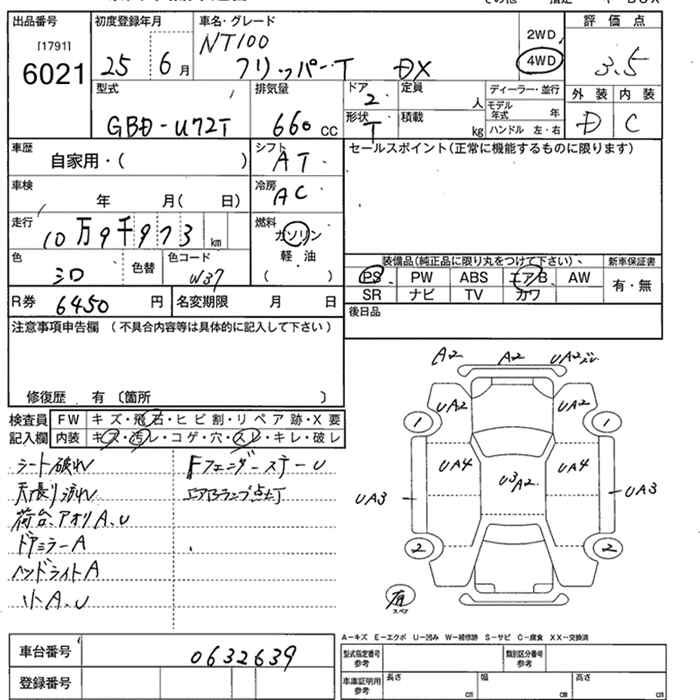 出品番号 初度登録年月 車名・グレード 評価点
[1791] NT100 2WD
6021 25 6月 フリッパーT DX 4WD 3.5
型式 排気量 ドア 定員 ディーラー・並行 外装 内装
2 人 モデル年式 年
GBD-U72T 660cc 形状 T 積載 kg ハンドル 左・右 D C
車歴 シフト セールスポイント(正常に機能するものに限ります)
自家用・( ) AT
車検 冷房
年 月( 日) AC
走行 燃料
10万9千973 km ガソリン
色 色替 色コード 軽油
シロ W37 ( )
装備品(純正品に限り丸をつけて下さい) 新車保証書
PS PW ABS エアB AW 有・無
SR ナビ TV カワ
R券 6450円 名変期限 月 日
後日品
注意事項申告欄 (不具合内容等は具体的に記入して下さい)
修復歴 有 〔箇所 〕
検査員 FW キズ・飛石・ヒビ割・リペア跡・X要
記入欄 内装 キズ・汚レ・コゲ・穴・スレ・キレ・破レ
シート破れ FフェンダーステーU
天張り汚れ エアBランプ点灯
荷台、アオリA、U
ドアミラーA
ヘッドライトA
小A、U
A2 A2 UA2
UA2 UA2
1 1
UA4 U3 A2 UA4
UA3 UA3
2 2
有
スペア
A-キズ E-エクボ U-凹み W-補修跡 S-サビ C-腐食 XX-交換済
車台番号 0632639
型式指定番号 参考 類別区分番号 参考
登録番号
車庫証明用 参考 長さ cm 幅 cm 高さ cm